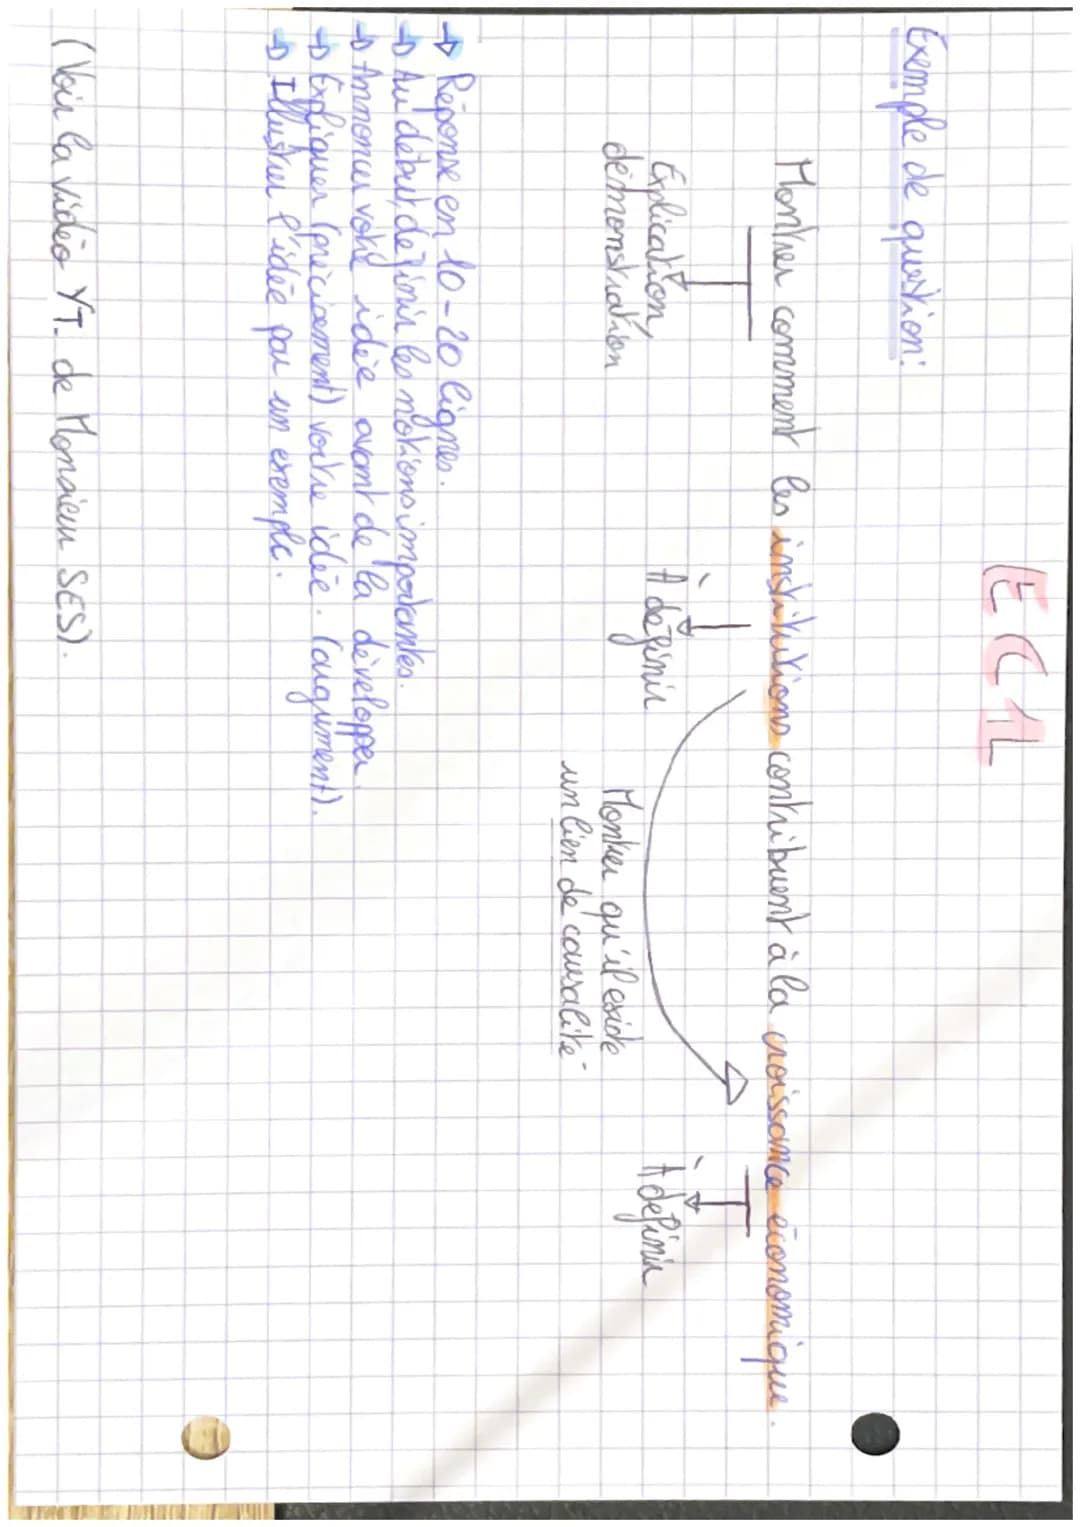 EC1
Exemple de question:
Montrer comment les institutions contribuent à la croissance économique.
Explication,
démonstration
À définir
Montrer qu'il existe
un lien de causalité
À définir
→ Réponse en 10-20 lignes.
→ Au début, définir les notions importantes.
→ Annoncer votre idée avant de la développer.
→ Expliquer (précisement) votre idée. (argument).
→ Illustrer l'idée par un exemple.
(Voir la vidéo YT. de Monsieur SES).